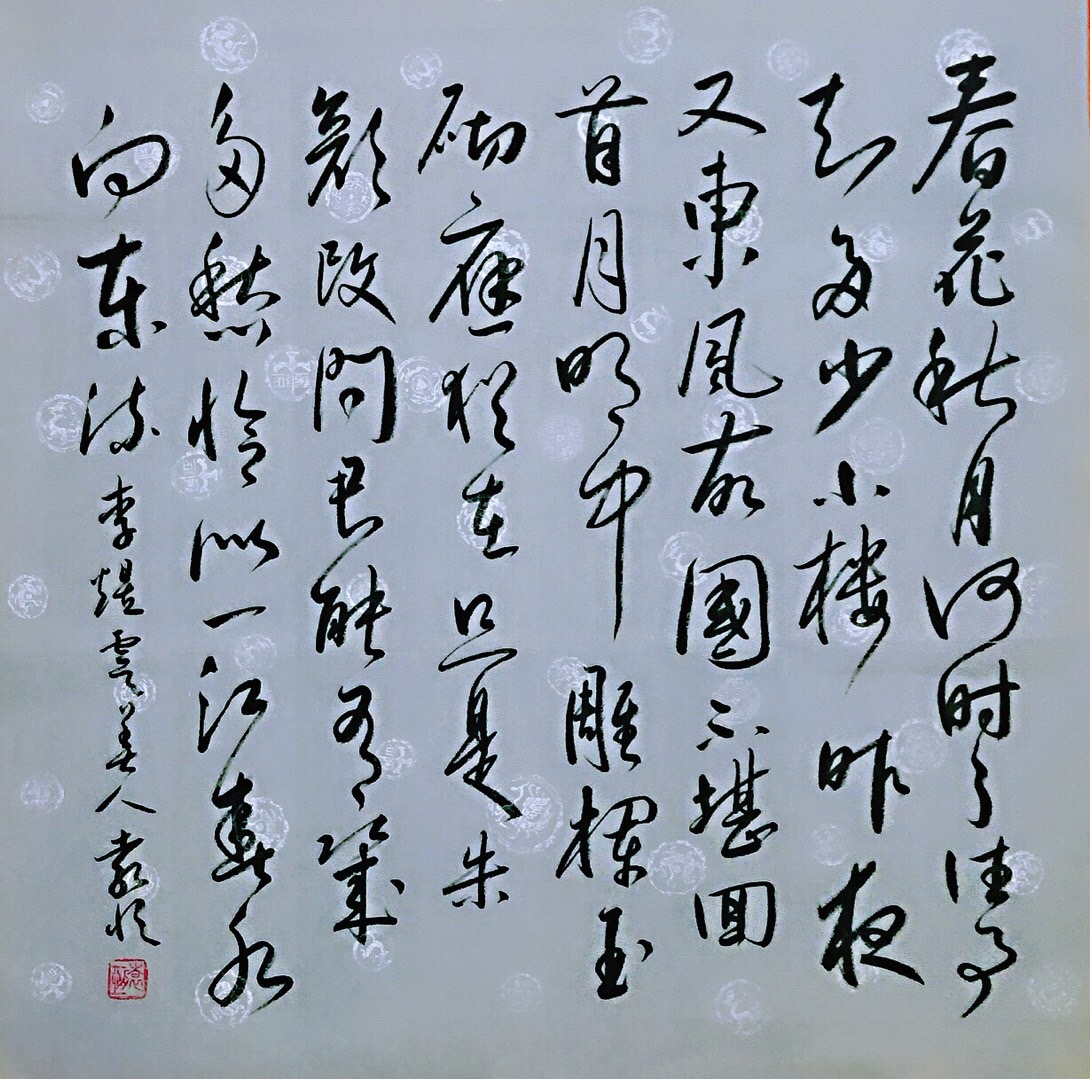 春花秋月何时了往事
知多少小楼昨夜
又東風故國不堪回
首月明中雕欄玉
砌應猶在只是朱
顏改問君能有幾
多愁恰似一江春水
向東流 李煜虞美人